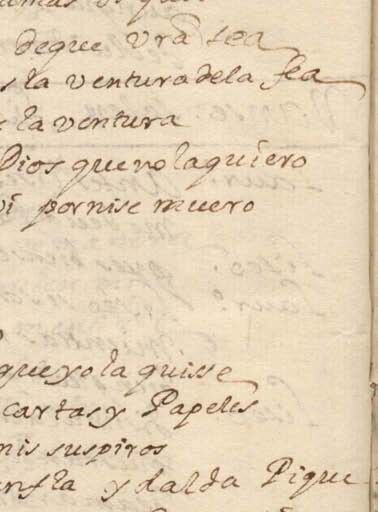 deque vra sea
la ventura dela fea
la ventura
Dios que no la quiero
por nise muero
que yo la quisse
cartas y Papeles
mis suspiros
y dalda Pique